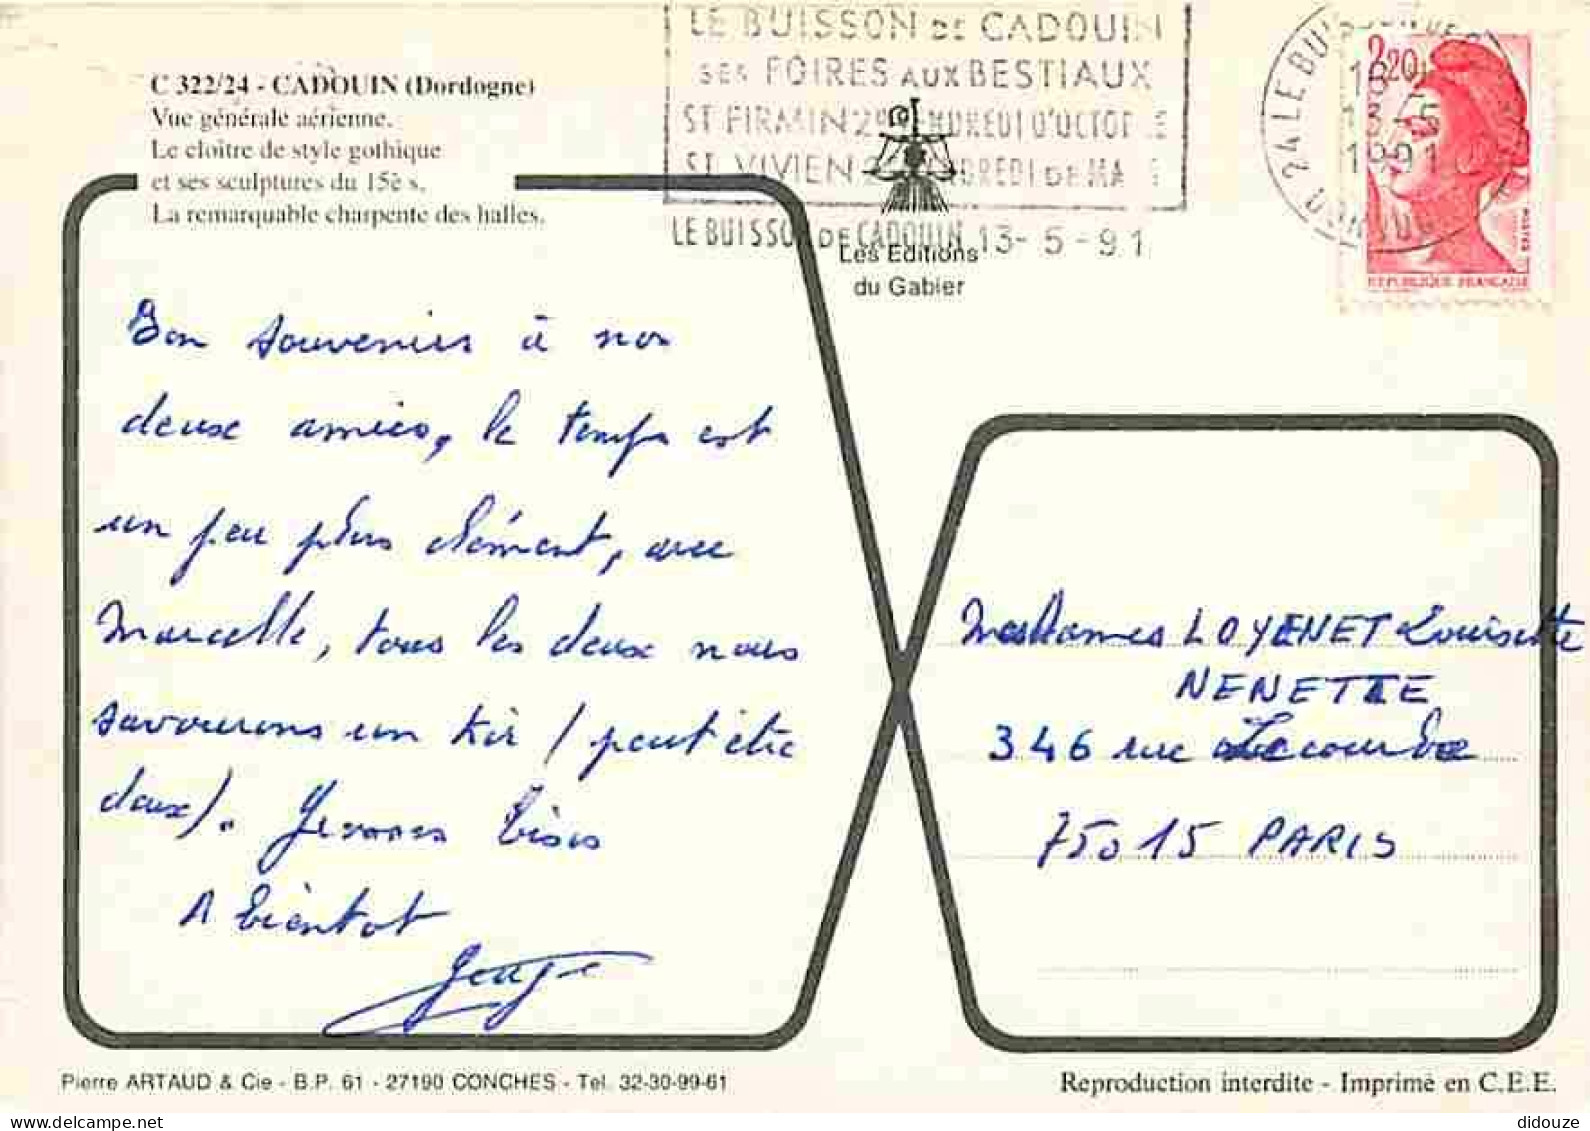 C 322/24 - CADOUIN (Dordogne)
Vue générale aérienne.
Le cloître de style gothique
et ses sculptures du 15è s.
La remarquable charpente des halles.
LE BUISSON DE CADOUIN
SES FOIRES AUX BESTIAUX
ST FIRMIN 2e VENDREDI D'OCTOBRE
ST VIVIEN 2e VENDREDI DE MAI
LE BUISSON DE CADOUIN 13-5-91
Les Editions
du Gabier
24 LE BUISSON DE
18
13-5
1991
DORDOGNE
2,20
POSTES
REPUBLIQUE FRANÇAISE
Bon souvenirs à nos
deux amies, le temps est
un peu plus clément, avec
Marcelle, tous les deux nous
savourons un kir (peut être
deux). Grosses bises
A bientot
Mesdames LOYENET Louisette
NENETTE
346 rue Lecourbe
75015 PARIS
Pierre ARTAUD & Cie - B.P. 61 - 27190 CONCHES - Tel. 32-30-99-61
Reproduction interdite - Imprimé en C.E.E.
didouze